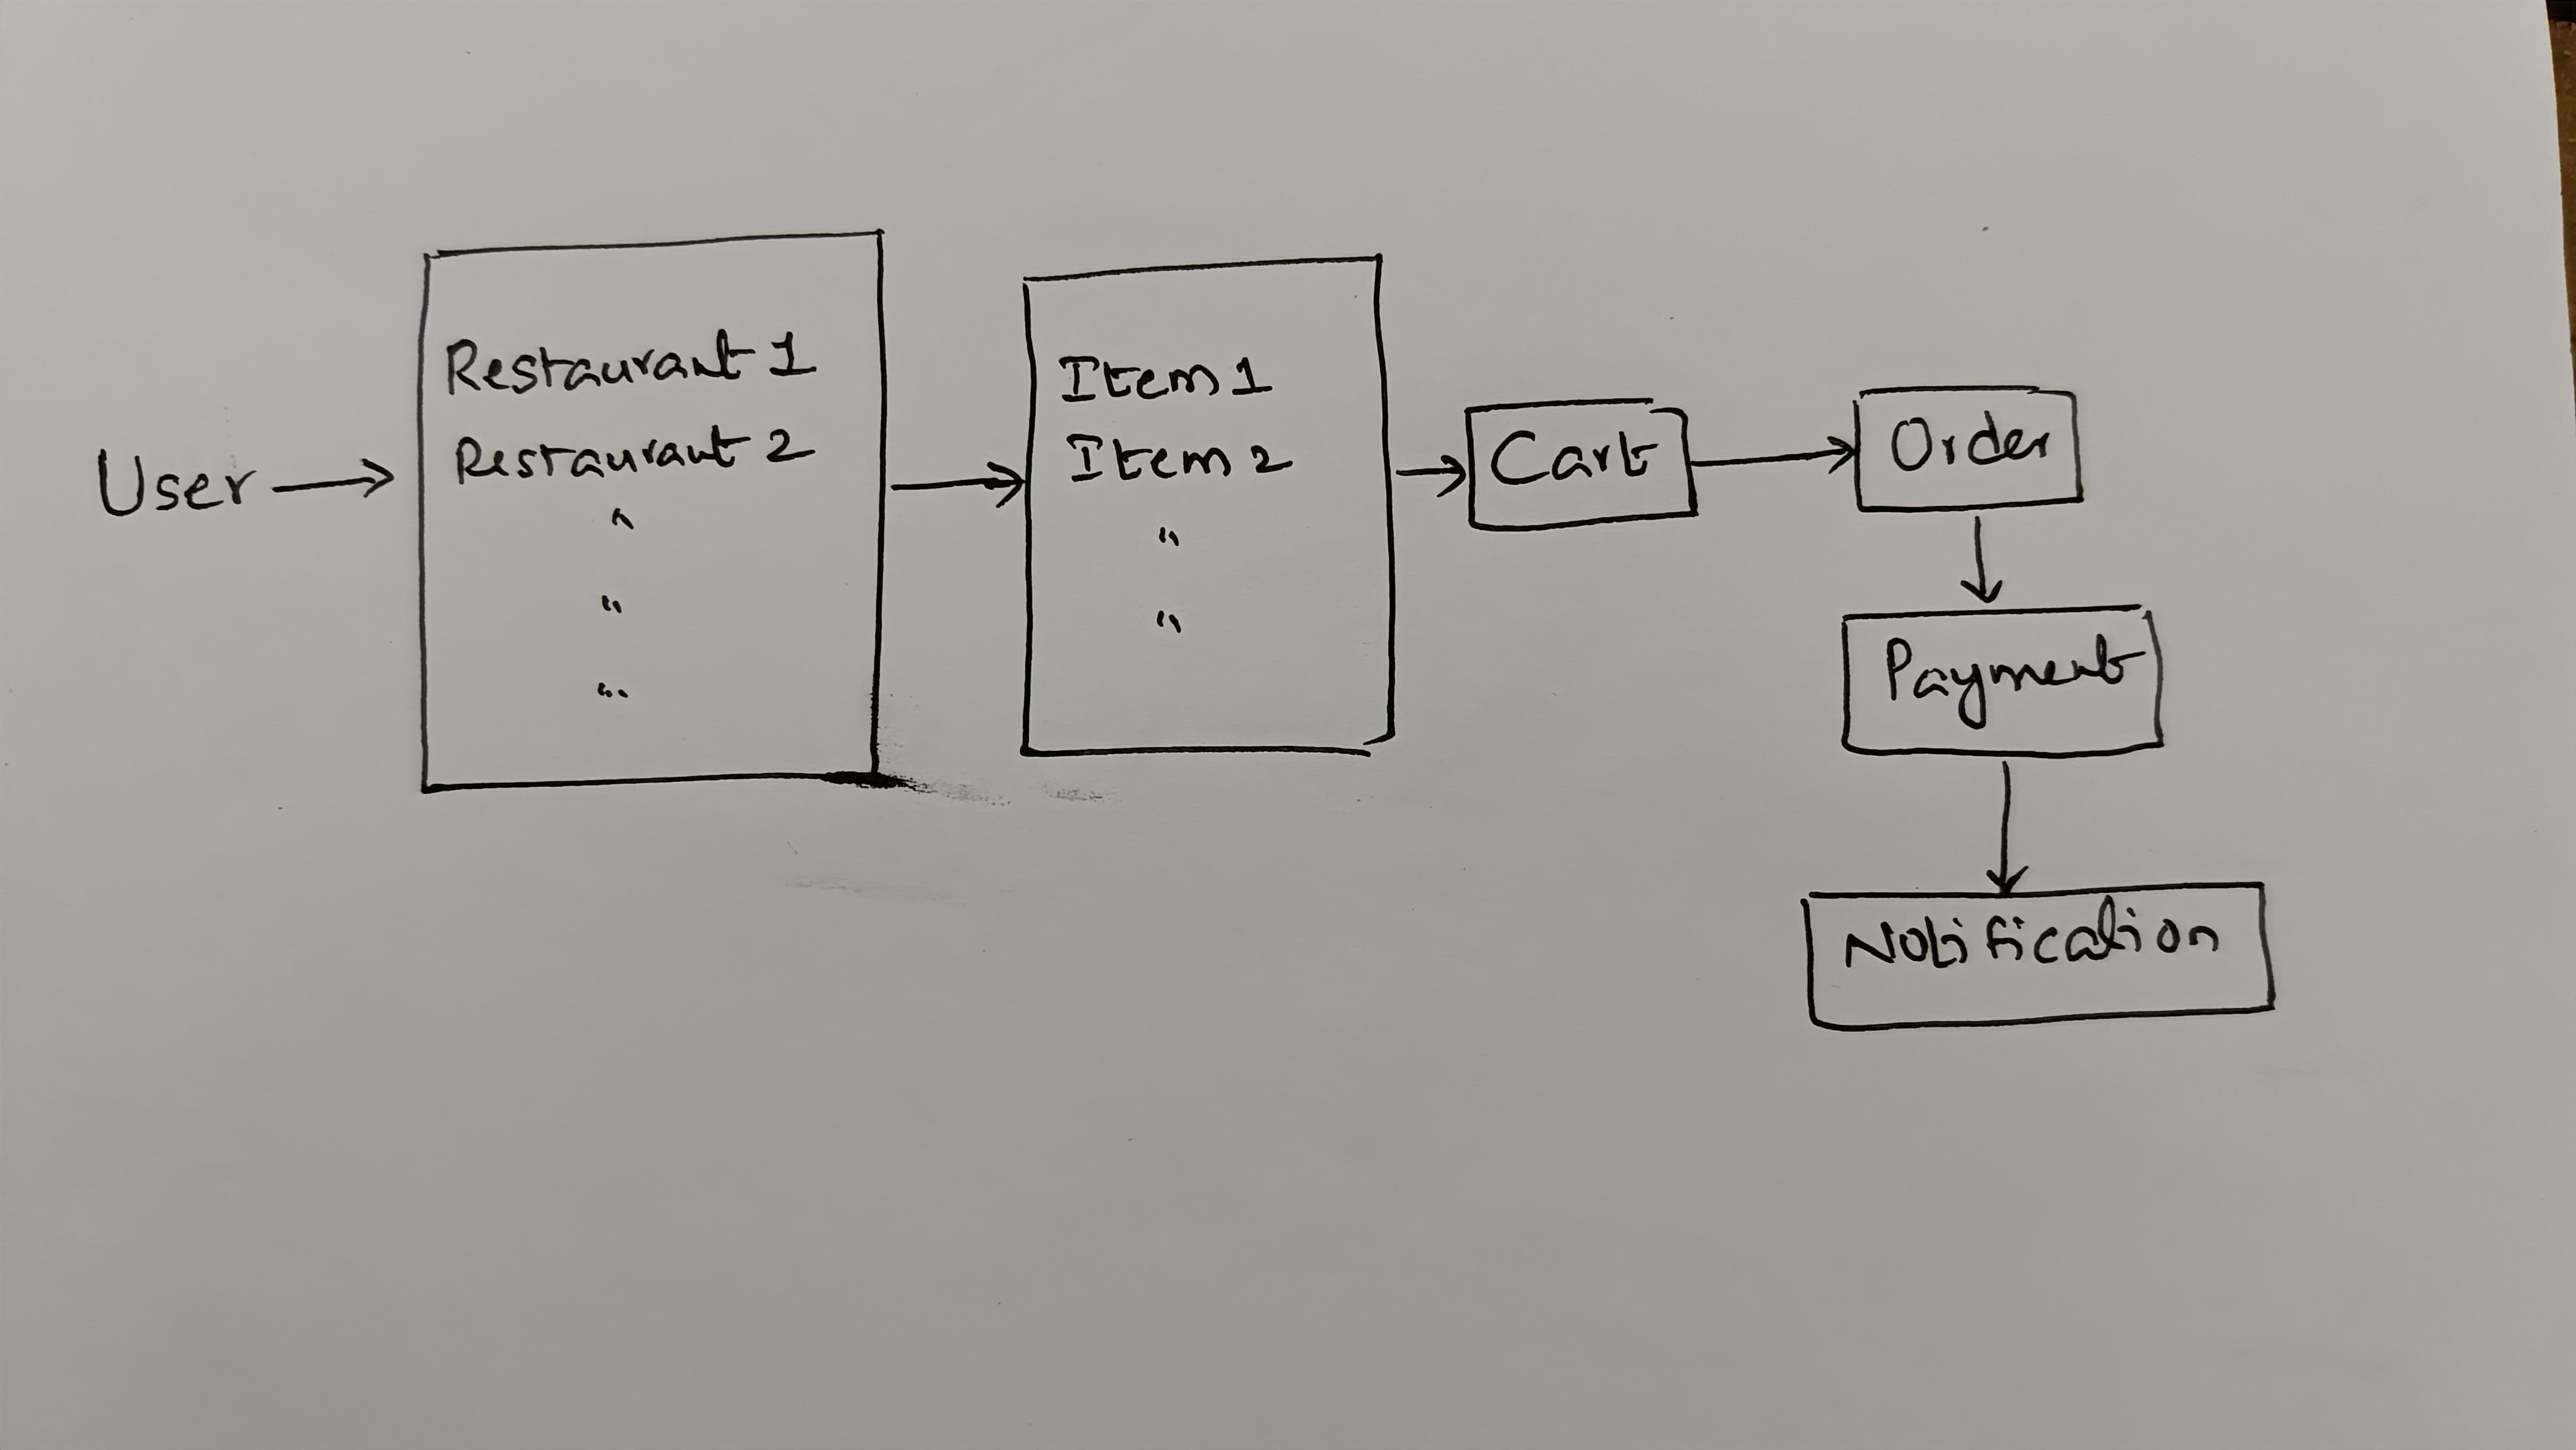 User
Restaurant 1
Restaurant 2
"
"
"
Item 1
Item 2
"
"
Cart
Order
Payment
Notification